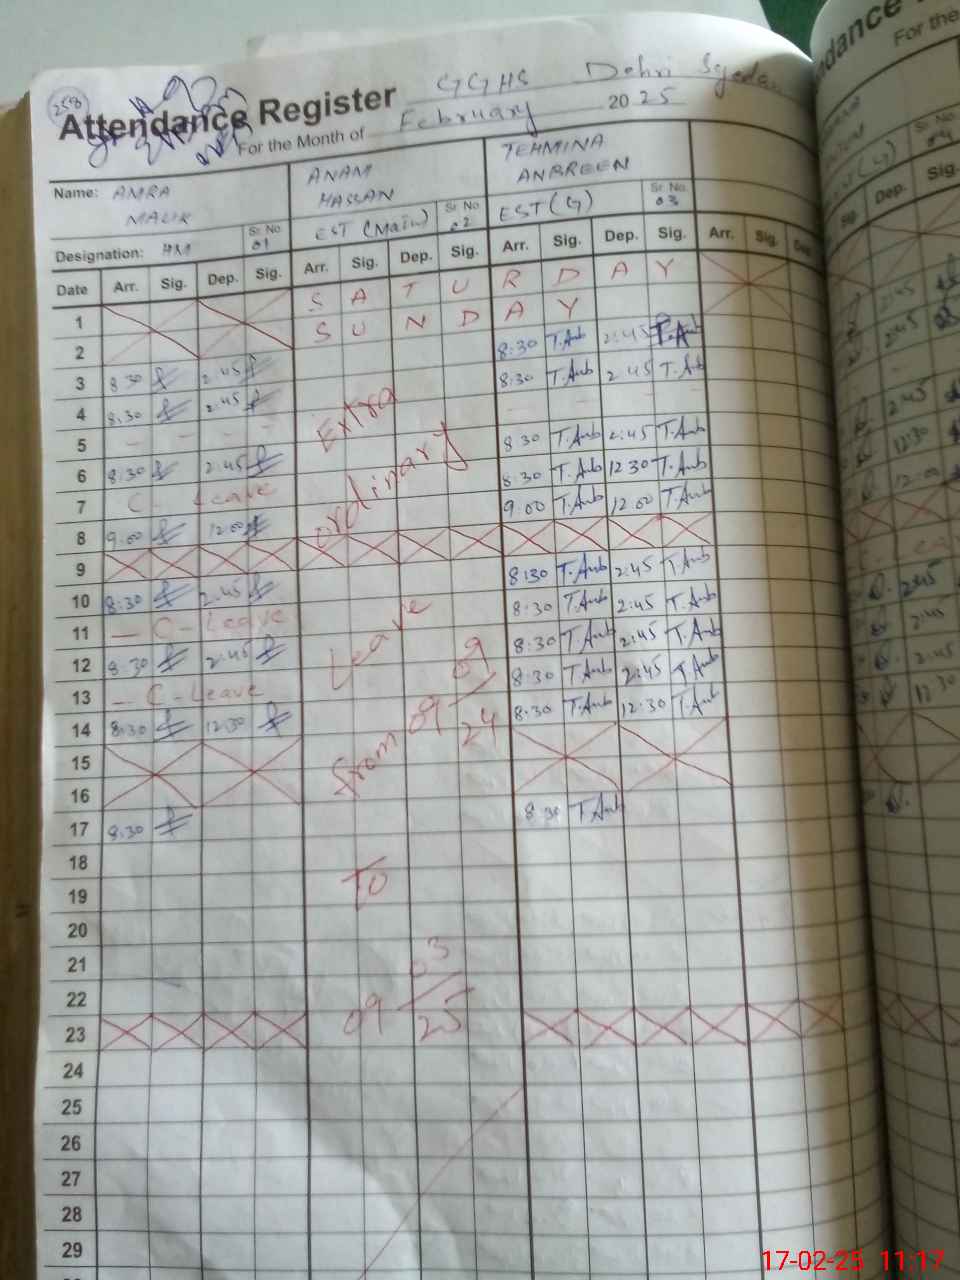 258
Attendance Register GGHS Dehri Syedan
For the Month of February 2025
Name: AMRA MALIK ANAM HASSAN TEHMINA ANBREEN
Designation: HM Sr. No 01 EST (Main) Sr. No 02 EST (G) Sr. No. 03
Date Arr. Sig. Dep. Sig. Arr. Sig. Dep. Sig. Arr. Sig. Dep. Sig. Arr. Sig.
1 S A T U R D A Y
2 S U N D A Y
3 8:30 2:45 8:30 T.Amb 2:45 T.Amb
4 8:30 2:45 Extra 8:30 T.Amb 2:45 T.Amb
5 - - - - - - - -
6 8:30 2:45 ordinary 8:30 T.Amb 2:45 T.Amb
7 C - Leave 8:30 T.Amb 12:30 T.Amb
8 9:00 12:00 9:00 T.Amb 12:00 T.Amb
9
10 8:30 2:45 8:30 T.Amb 2:45 T.Amb
11 - C - Leave Leave 8:30 T.Amb 2:45 T.Amb
12 8:30 2:45 8:30 T.Amb 2:45 T.Amb
13 - C - Leave 8:30 T.Amb 2:45 T.Amb
14 8:30 12:30 from 09 09/24 8:30 T.Amb 12:30 T.Amb
15
16
17 8:30 8:30 T.Amb
18
19 To
20
21
22
23 09 03/25
24
25
26
27
28
29
dance
For the
Sr. No
04
Dep. Sig.
2:45
2:45
2:45
12:30
12:00
2:45
2:45
2:45
12:30
17-02-25 11:17